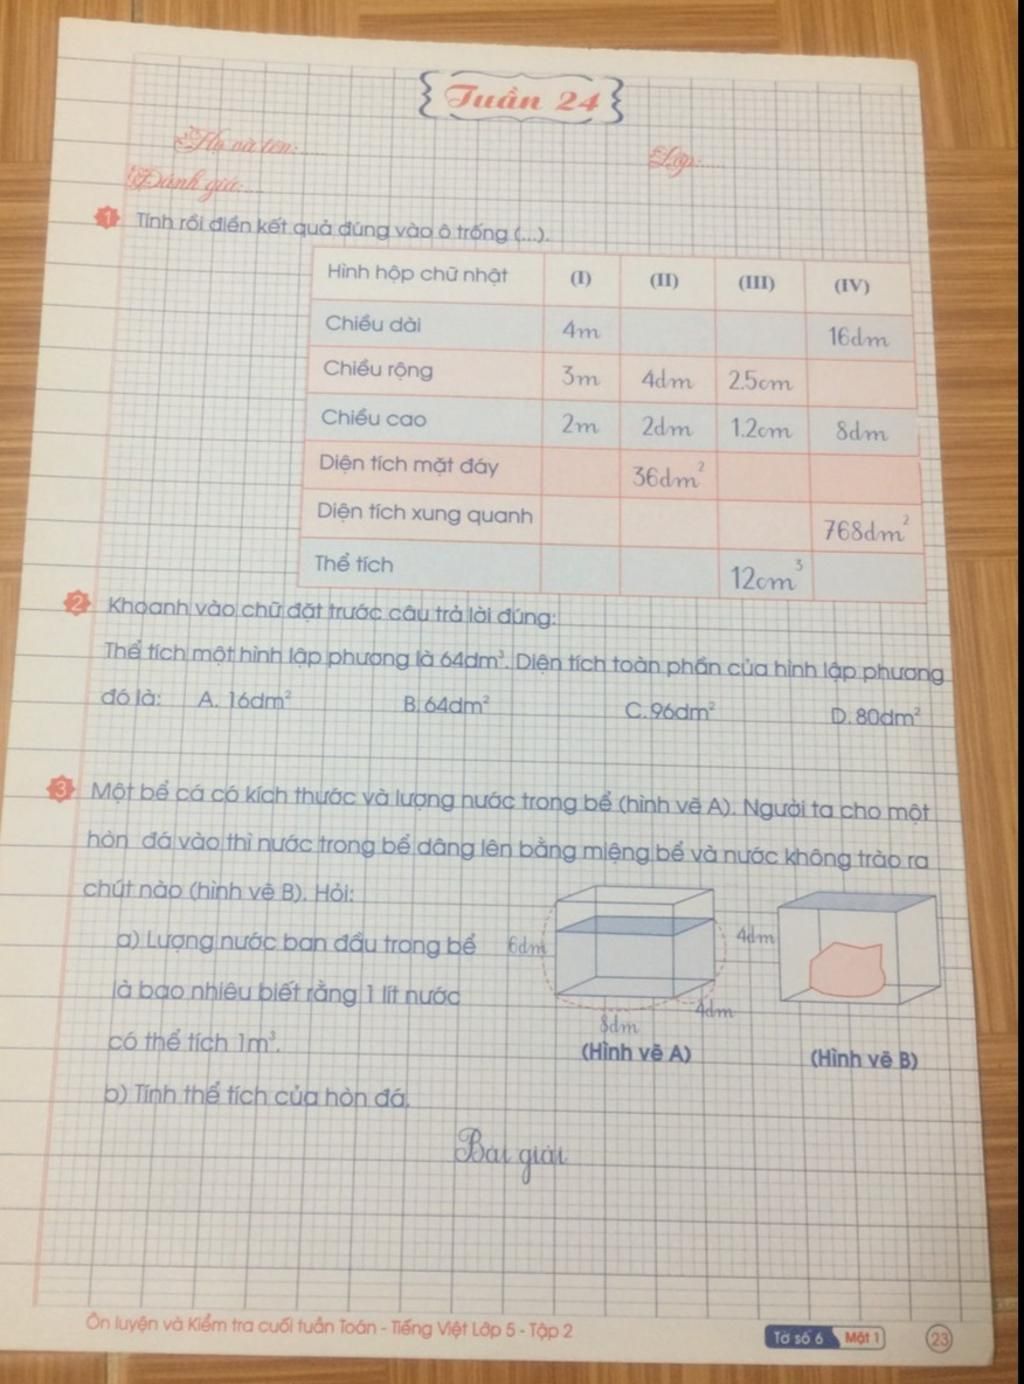 Tuần 24
Họ và tên:....
Lớp:....
Đánh giá:....
1 Tính rồi điền kết quả đúng vào ô trống (...).
Hình hộp chữ nhật (I) (II) (III) (IV)
Chiều dài 4m 16dm
Chiều rộng 3m 4dm 2.5cm
Chiều cao 2m 2dm 1.2cm 8dm
Diện tích mặt đáy 36dm²
Diện tích xung quanh 768dm²
Thể tích 12cm³
2 Khoanh vào chữ đặt trước câu trả lời đúng:
Thể tích một hình lập phương là 64dm³. Diện tích toàn phần của hình lập phương
đó là: A. 16dm² B. 64dm² C. 96dm² D. 80dm²
3 Một bể cá có kích thước và lượng nước trong bể (hình vẽ A). Người ta cho một
hòn đá vào thì nước trong bể dâng lên bằng miệng bể và nước không trào ra
chút nào (hình vẽ B). Hỏi:
a) Lượng nước ban đầu trong bể
là bao nhiêu biết rằng 1 lít nước
có thể tích 1m³.
b) Tính thể tích của hòn đá.
6dm 4dm
4dm
8dm
(Hình vẽ A) (Hình vẽ B)
Bài giải
Ôn luyện và Kiểm tra cuối tuần Toán - Tiếng Việt Lớp 5 - Tập 2 Tờ số 6 Mặt 1 23